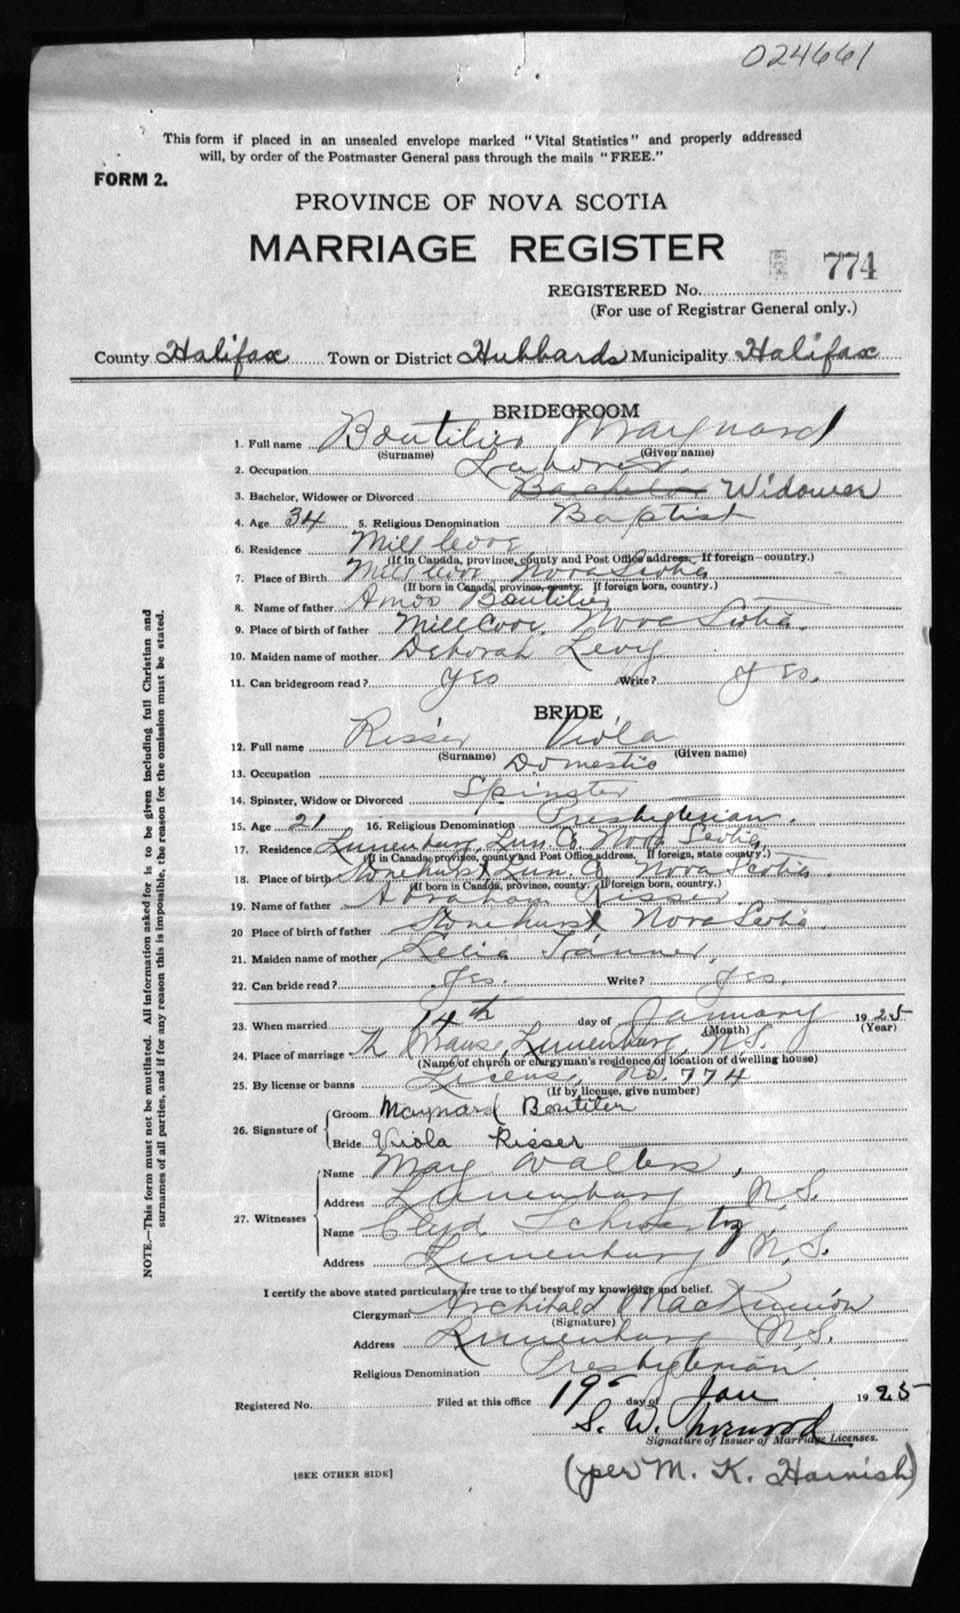 024661
This form if placed in an unsealed envelope marked "Vital Statistics" and properly addressed
will, by order of the Postmaster General pass through the mails "FREE."
FORM 2.
PROVINCE OF NOVA SCOTIA
MARRIAGE REGISTER
774
REGISTERED No.
(For use of Registrar General only.)
County Halifax Town or District Hubbards Municipality Halifax
BRIDEGROOM
1. Full name Boutilier Maynard
(Surname) (Given name)
2. Occupation Laborer.
3. Bachelor, Widower or Divorced Bachelor Widower
4. Age 34 5. Religious Denomination Baptist
6. Residence Mill Cove
(If in Canada, province, county and Post Office address. If foreign—country.)
7. Place of Birth Mill Cove Nova Scotia
(If born in Canada, province, county. If foreign born, country.)
8. Name of father Amos Boutilier
9. Place of birth of father Mill Cove, Nova Scotia.
10. Maiden name of mother Deborah Levy
11. Can bridegroom read? Yes Write? Yes.
BRIDE
12. Full name Risser Viola
(Surname) (Given name)
13. Occupation Domestic
14. Spinster, Widow or Divorced Spinster
15. Age 21 16. Religious Denomination Presbyterian.
17. Residence Lunenburg, Lun. Co. Nova Scotia,
(If in Canada, province, county and Post Office address. If foreign, state country.)
18. Place of birth Stonehurst Lun. Co. Nova Scotia.
(If born in Canada, province, county. If foreign born, country.)
19. Name of father Abraham Risser
20 Place of birth of father Stonehurst Nova Scotia.
21. Maiden name of mother Lelia Tanner,
22. Can bride read? Yes. Write? Yes.
23. When married 14th day of January 1925
(Month) (Year)
24. Place of marriage Th Manse, Lunenburg, N.S.
(Name of church or clergyman's residence or location of dwelling house)
25. By license or banns License, No. 774
(If by license, give number)
26. Signature of
Groom Maynard Boutilier
Bride Viola Risser
27. Witnesses
Name Mary Walters,
Address Lunenburg N.S.
Name Clyd Schwartz,
Address Lunenburg N.S.
I certify the above stated particulars are true to the best of my knowledge and belief.
Clergyman Archibald MacKinnon
(Signature)
Address Lunenburg N.S.
Religious Denomination Presbyterian
Registered No. Filed at this office 19 day of Jan 1925
S. W.
Signature of Issuer of Marriage Licenses.
(per M. K. Harnish)
[SEE OTHER SIDE]
NOTE.—This form must not be mutilated. All information asked for is to be given including full Christian and
surnames of all parties, and if for any reason this is impossible, the reason for the omission must be stated.